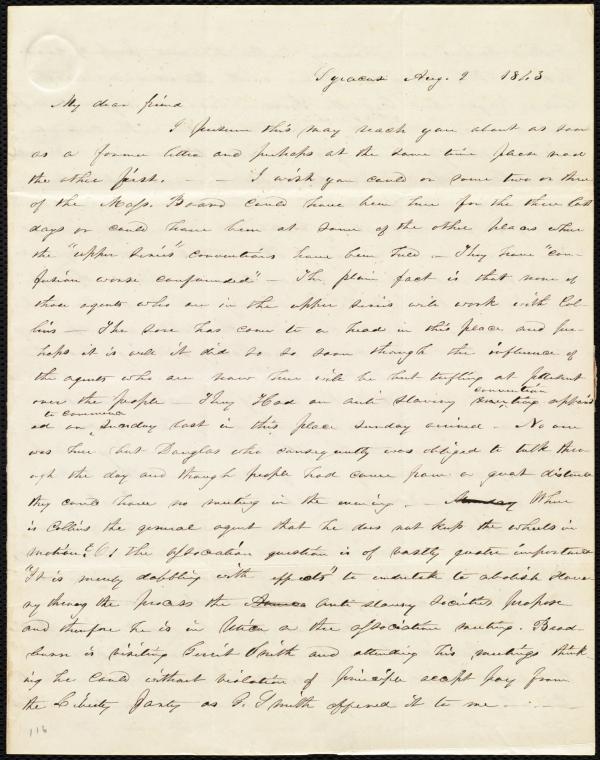 Syracuse Aug. 9 1843
My dear friend
I presume this may reach you about as soon
as a former letter and perhaps at the same time please read
the other first. — — I wish you could or some two or three
of the Mass. Board could have been here for the three last
days or could have been at some of the other places where
the "upper series" conventions have been held — They have "con-
fusion worse confounded" — The plain fact is that none of
those agents who are in the upper series will work with Col-
lins — The sore has come to a head in this place and per-
haps it is well it did so so soon though the influence of
the agents who are now here will be but trifling at present
convention
over the people — They Had an anti slavery meeting appoint
to commence
ed on Sunday last in this place Sunday arrived — No one
was here but Douglas who consequently was obliged to talk thro-
ugh the day and though people had come from a great distance
they could have no meeting in the evening. — Monday Where
is Collins the general agent that he does not keep the wheels in
motion? O! the association question is of vastly greater importance
"It is merely dabbling with effects" to undertake to abolish slave-
ry through the process the anti slavery societies propose
and therefore he is in Utica at the association meeting. Brad-
burn is visiting Gerrit Smith and attending his meetings think-
ing he could without violation of principle accept pay from
the Liberty Party as G. Smith offered it to me —
116